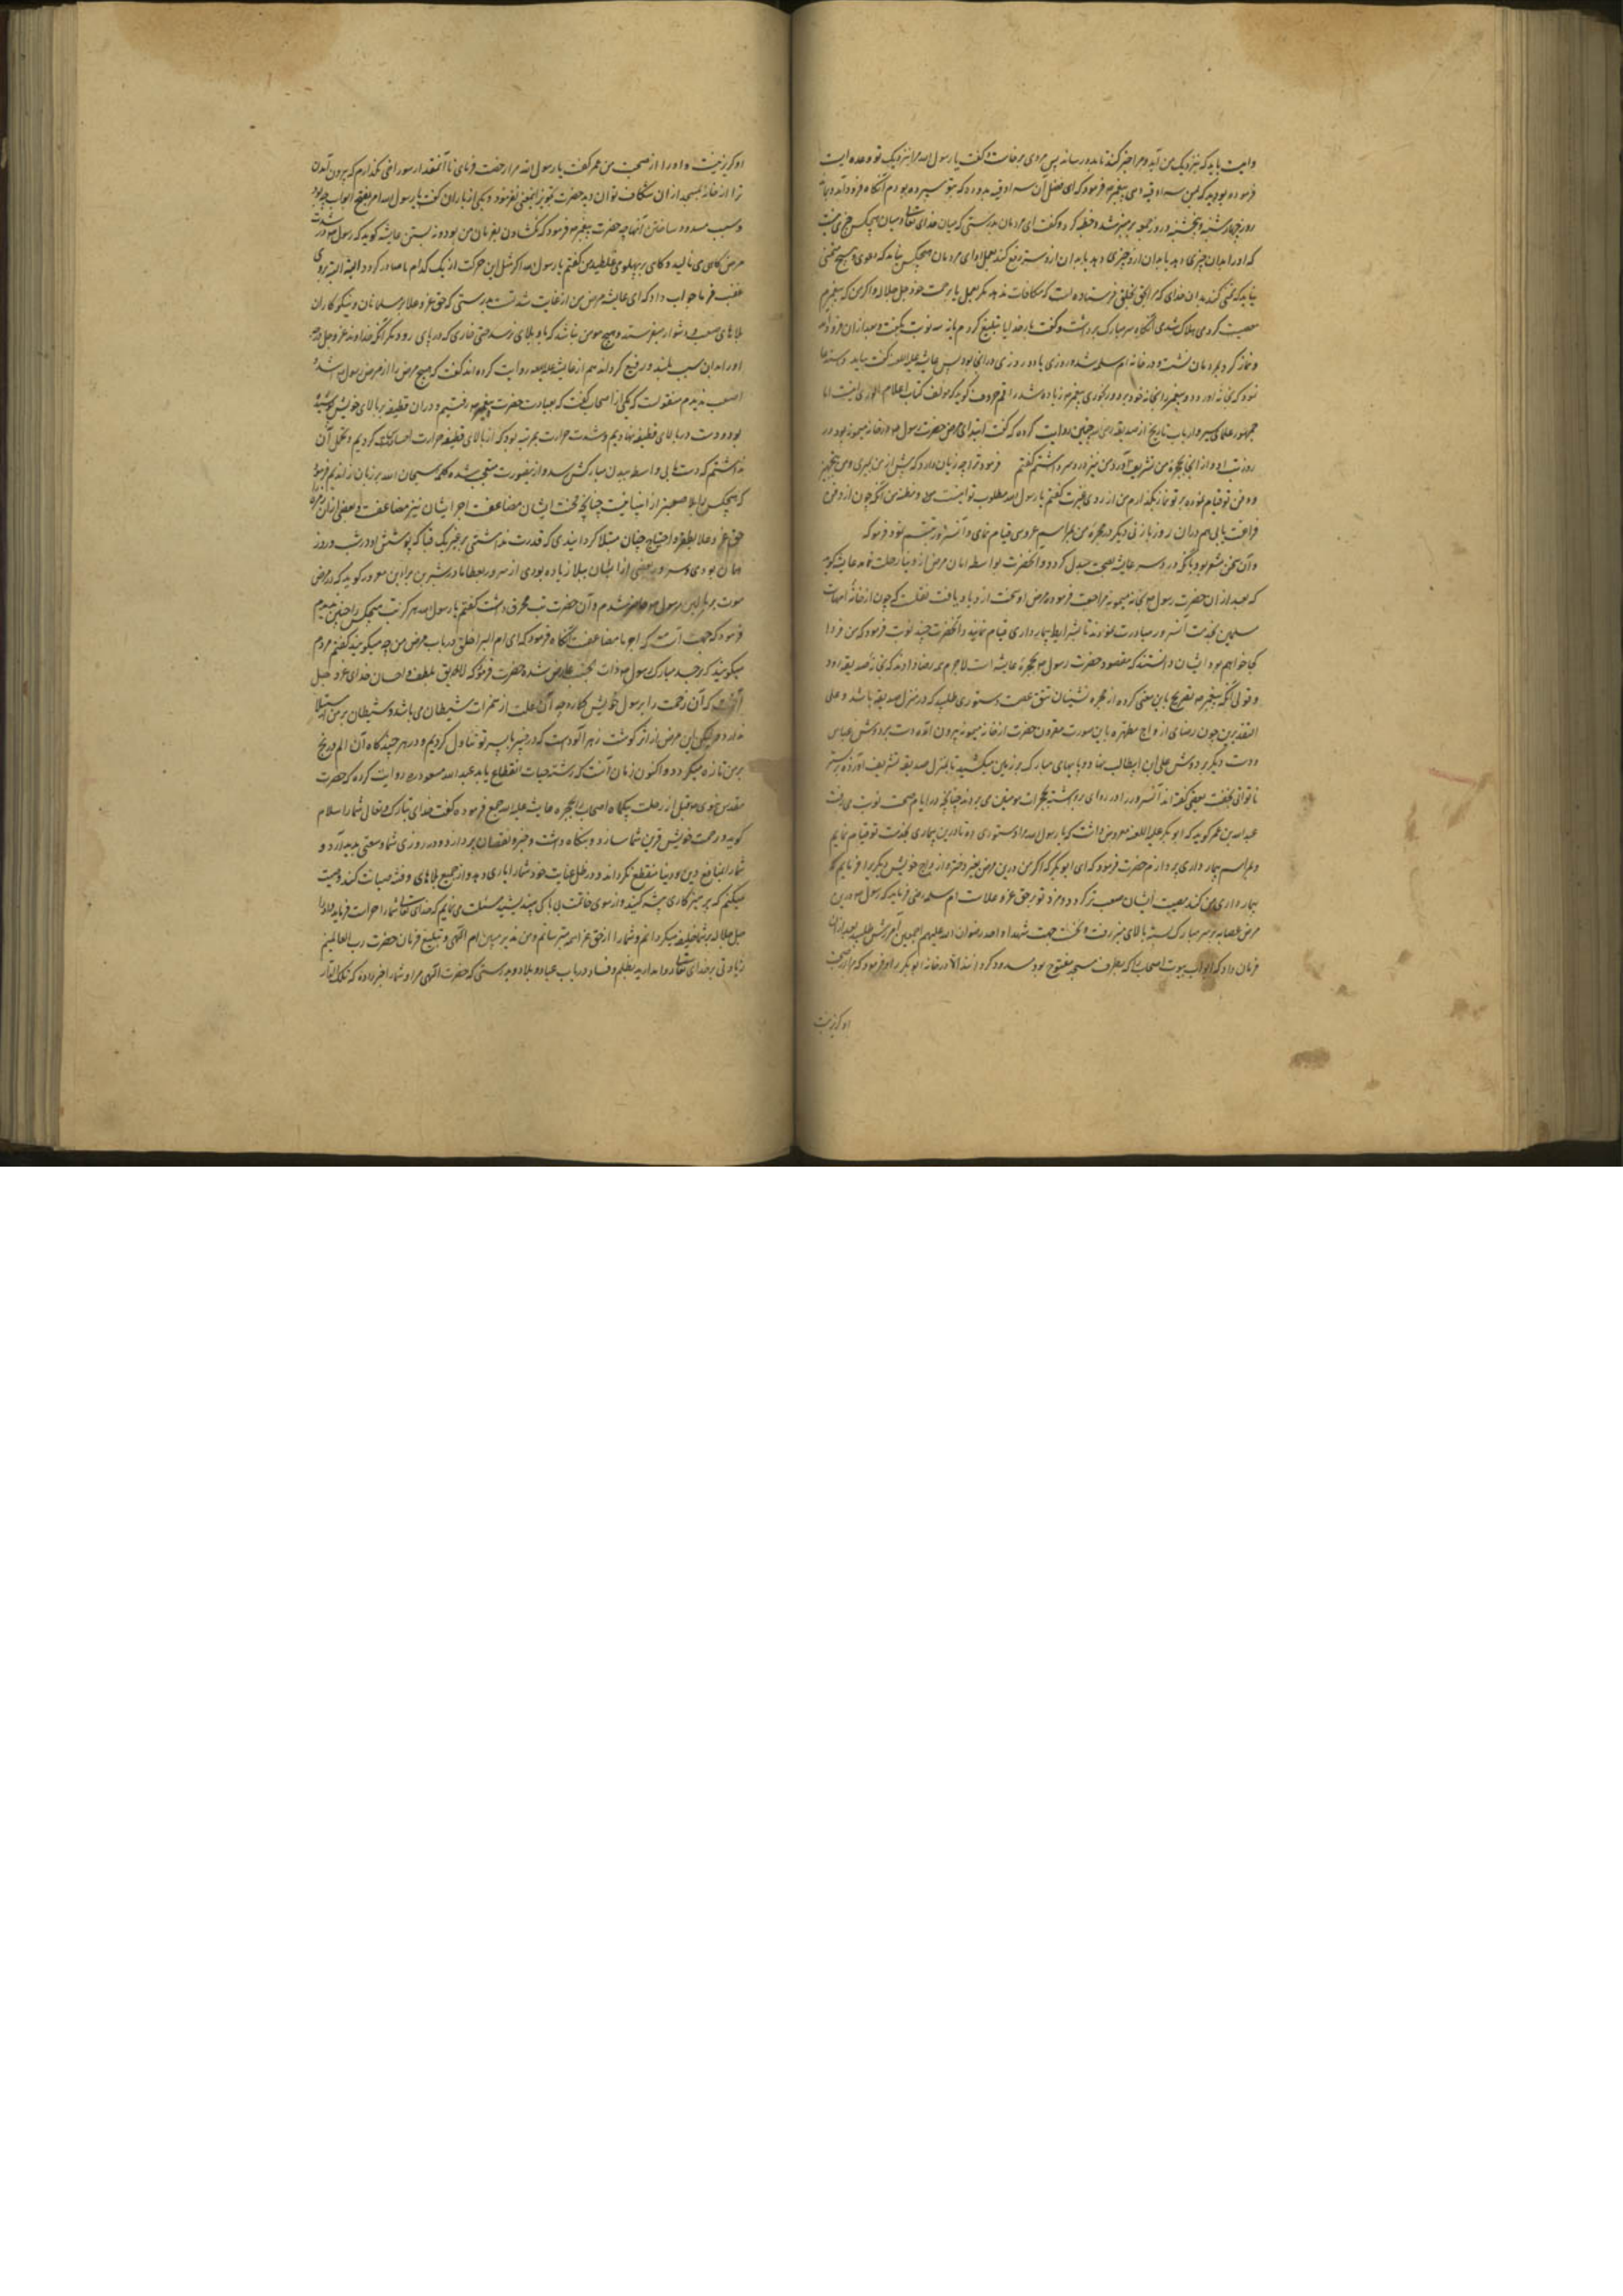 وامیت باید که بنزدیک من آید و مرا خبر کند تا بدو رسانم پس مردی برخاست و گفت یا رسول الله مرا بنزدیک تو وعده ایست
فرموده بودید که بمن سه اوقیه دهی پیغمبر فرمود که ای فضل آن سه اوقیه بدو ده که بتو سپرده بودم آنگاه فرود آمد و
روز چهارشنبه و پنجشنبه و روز جمعه بر منبر شد و خطبه کرد و گفت ای مردمان بدرستی که میان خدای تعالی و میان هیچکس
که او را بدان چیزی دهد یا بدان از و چیزی دهد یا بدان از و شر دفع کند بعمل ای مردمان هیچکس نباید که دعوی و هیچ متمنی
نباید که تمنی کند بدان خدای که مرا بحق بخلق فرستاده است که مکافات ندهد مگر بعمل یا برحمت خود جل جلاله و اگر من که پیغمبرم
معصیت کردمی هلاک شدمی آنگاه سر مبارک برداشت و گفت بار خدایا تبلیغ کردم یا نه سه نوبت بگفت و بعد از آن فرود
و نماز کرد بمردمان نشست و در خانه ام سلمه شد و روزی یا دو روزی در آنجا بود پس عایشه گفت بیاید
نمود که بخانه او رود و پیغمبر را بخانه خود برد و رنجوری پیغمبر زیاده شد راقم حروف گوید که مولف کتاب اعلام الوری
جمهور علمای سیر و ارباب تاریخ از صدیقه چنین روایت کرده که گفت ابتدای مرض حضرت رسول در خانه میمونه بود در
روز نوبت او و از آنجا بحجره من تشریف آورد من نیز درد سر داشتم گفتم فرمود ترا چه زیان دارد که پیش از من بمیری و من بتجهیز
و دفن تو قیام نموده بر تو نماز بگذارم من از روی غیرت گفتم یا رسول الله مطلوب تو اینست من و مظنه من آنکه چون از دفن من
فراغت یابی هم در آن روز با زنی دیگر در حجره من بمراسم عروسی قیام نمای و آنسرور تبسم نمود فرمود که
و آن سخن مشعر بود بآنکه درد سر عایشه بصحت مبدل گردد و آنحضرت بواسطه آن مرض از دنیا رحلت نماید عایشه گوید
که بعد از آن حضرت رسول بخانه میمونه مراجعت فرموده مرض او سخت ازدیاد یافت نقلست که چون از خانه امهات
مسلمین بخدمت آنسرور مبادرت نمودند تا بشرایط بیمارداری قیام نمایند و آنحضرت چند نوبت فرمود که من فردا
کجا خواهم بود ایشان دانستند که مقصود حضرت رسول حجره عایشه است لاجرم همه رضا دادند که بخانه صدیقه رود
و قولی آنکه پیغمبر تصریح باین معنی کرده از حجره نشینان تتق عصمت دستوری طلبید که در منزل صدیقه باشد و علی
التقدیرین چون رضای ازواج مطهره باین صورت مقرون حضرت از خانه میمونه بیرون آمد دست بر دوش عباس
و دست دیگر بر دوش علی ابن ابیطالب نهاد و پایهای مبارک بر زمین میکشید تا بمنزل صدیقه تشریف آورده بر بستر
ناتوانی بخفت بعضی گفته اند آنسرور را در ردای برداشته بحجرات مومنین می بردند چنانچه در ایام صحت نوبت می رفت
عبدالله بن عمر گوید که ابو بکر معروض داشت که یا رسول الله مرا دستوری ده تا درین بیماری بخدمت تو قیام نمایم
و بمراسم بیمار داری پردازم حضرت فرمود که ای ابو بکر اگر من درین مرض بغیر دختر و ازواج خویش دیگر یرا فرمایم که
بیمار داری من کند مصیبت ایشان صعب تر گردد و مزد تو بر حق عز و علاست ام سلمه فرماید که رسول درین
مرض عصابه بر سر مبارک بسته بالای منبر رفت و نخست جهت شهداء احد رضوان الله علیهم اجمعین آمرزش طلبید بعد از آن
فرمان داد که ابواب بیوت اصحاب را که بطرف مسجد مفتوح بود مسدود گردانند الا در خانه ابو بکر را و فرمود که مرا در صحبت
او گزیر نیست
او گزیر نیست و او را از صحبت من عمر گفت یا رسول الله مرا رخصت فرمای تا آنمقدار سوراخی بگذارم که بیرون آمدن
ترا از خانه بمسجد از آن شکاف توان دید حضرت تجویز اینمعنی نفرمود و یکی از یاران گفت یا رسول الله امر بفتح ابواب چه بود
و سبب مسدود ساختن آنها چه حضرت پیغمبر فرمود که نه گشادن بفرمان من بود و نه بستن عایشه گوید که رسول در شدت
مرض گاهی می نالید و گاهی بر پهلو می غلطید من گفتم یا رسول الله اگر مثل این حرکت از یکی کدام ما صادر گردد البته البته بر وی
غضب فرما جواب داد که ای عایشه مرض من از غایت شدتست بدرستی که حق عز و علا بر مسلمانان و نیکوکاران
بلاهای صعب و دشوار میفرستد و هیچ مومن نباشد که باو بلای نرسد حتی خاری که در پای رود مگر آنکه خداوند عز و جل درجه
او را بدان سبب بلند و رفیع گرداند هم از عایشه روایت کرده اند که گفت که هیچ مرض را از مرض رسول اشد و
اصعب ندیدم منقولست که یکی از اصحاب گفت که بعیادت حضرت پیغمبر رفتیم و در آن قطیفه بر بالای خویش پوشیده
بود و دست بر بالای قطیفه نهادیم و شدت حرارت بمرتبه بود که از بالای قطیفه حرارت احساس کردیم و تحمل آن
نداشتم که دست ما بی واسطه ببدن مبارکش رسد و ازینصورت متعجب شده کلمه سبحان الله بر زبان راندیم فرمود
که هیچکس را بلا صعبتر از انبیا نیست چنانچه محنت ایشان مضاعف اجر ایشان نیز مضاعفست و بعضی از آن
حق عز و علا بفقر و احتیاج چنان مبتلا گردانیدی که قدرت نداشتی بر غیر یک قبا که پوشش او در شب و روز
همان بودی و سرور بعضی از ایشان ببلا زیاده بودی از سرور بعطا مادر بشر بن براء بن معرور گوید که در مرض
موت بر بالین رسول حاضر شدم و آن حضرت تب محرق داشت گفتم یا رسول الله هرگز تب هیچکس را چنین ندیدم
فرمود که جهت آنست که اجر ما مضاعفست آنگاه فرمود که ای ام البراء خلق در باب مرض من چه میگویند گفتم مردم
میگویند که بر جسد مبارک رسول ذات الجنب عارض شده حضرت فرمود که لایق بلطف و احسان خدای عز و جل
آن نیست که آن زحمت را بر رسول خویش گمارد چه آن علت از همزات شیطان می باشد و شیطان بر من استیلا
ندارد و لیکن این مرض من از اثر گوشت زهر آلودست که در خیبر با پسر تو تناول کردیم و در هر چندگاه آن الم و رنج
بر من تازه میگردد و اکنون زمان آنست که رشته حیات انقطاع یابد عبد الله مسعود روایت کرده که حضرت
مقدس نبوی قبل از رحلت بیکماه اصحاب را بحجره عایشه جمع فرموده گفت خدای تبارک و تعالی شما را سلام
گوید و رحمت خویش قرین شما سازد و نگاه داشت و جبر نقصان پردازد و در روزی شما وسعتی پدید آرد و
شما را بمنافع دین و دنیا منقطع نگرداند و در ظل عنایت خود شما را یاری دهد و از جمیع بلاهای و فتنه صیانت کند وصیت
میکنم که پرهیزگاری پیشه کنید و از سوی خاتمت بی باک مباشید مسئلت می نمایم که خدای تعالی شما را حراست فرماید و او را
جل جلاله بر شما خلیفه میگردانم و شما را از حق عز اسمه میترسانم و من نذیر مبین ام الهی و تبلیغ فرمان حضرت رب العالمین
زیادتی بر خدای تعالی روا مدارید بظلم و فساد در باب عباد و بلاد و بدرستی که حضرت الهی مرا و شما را خبر داده که تلک الدار